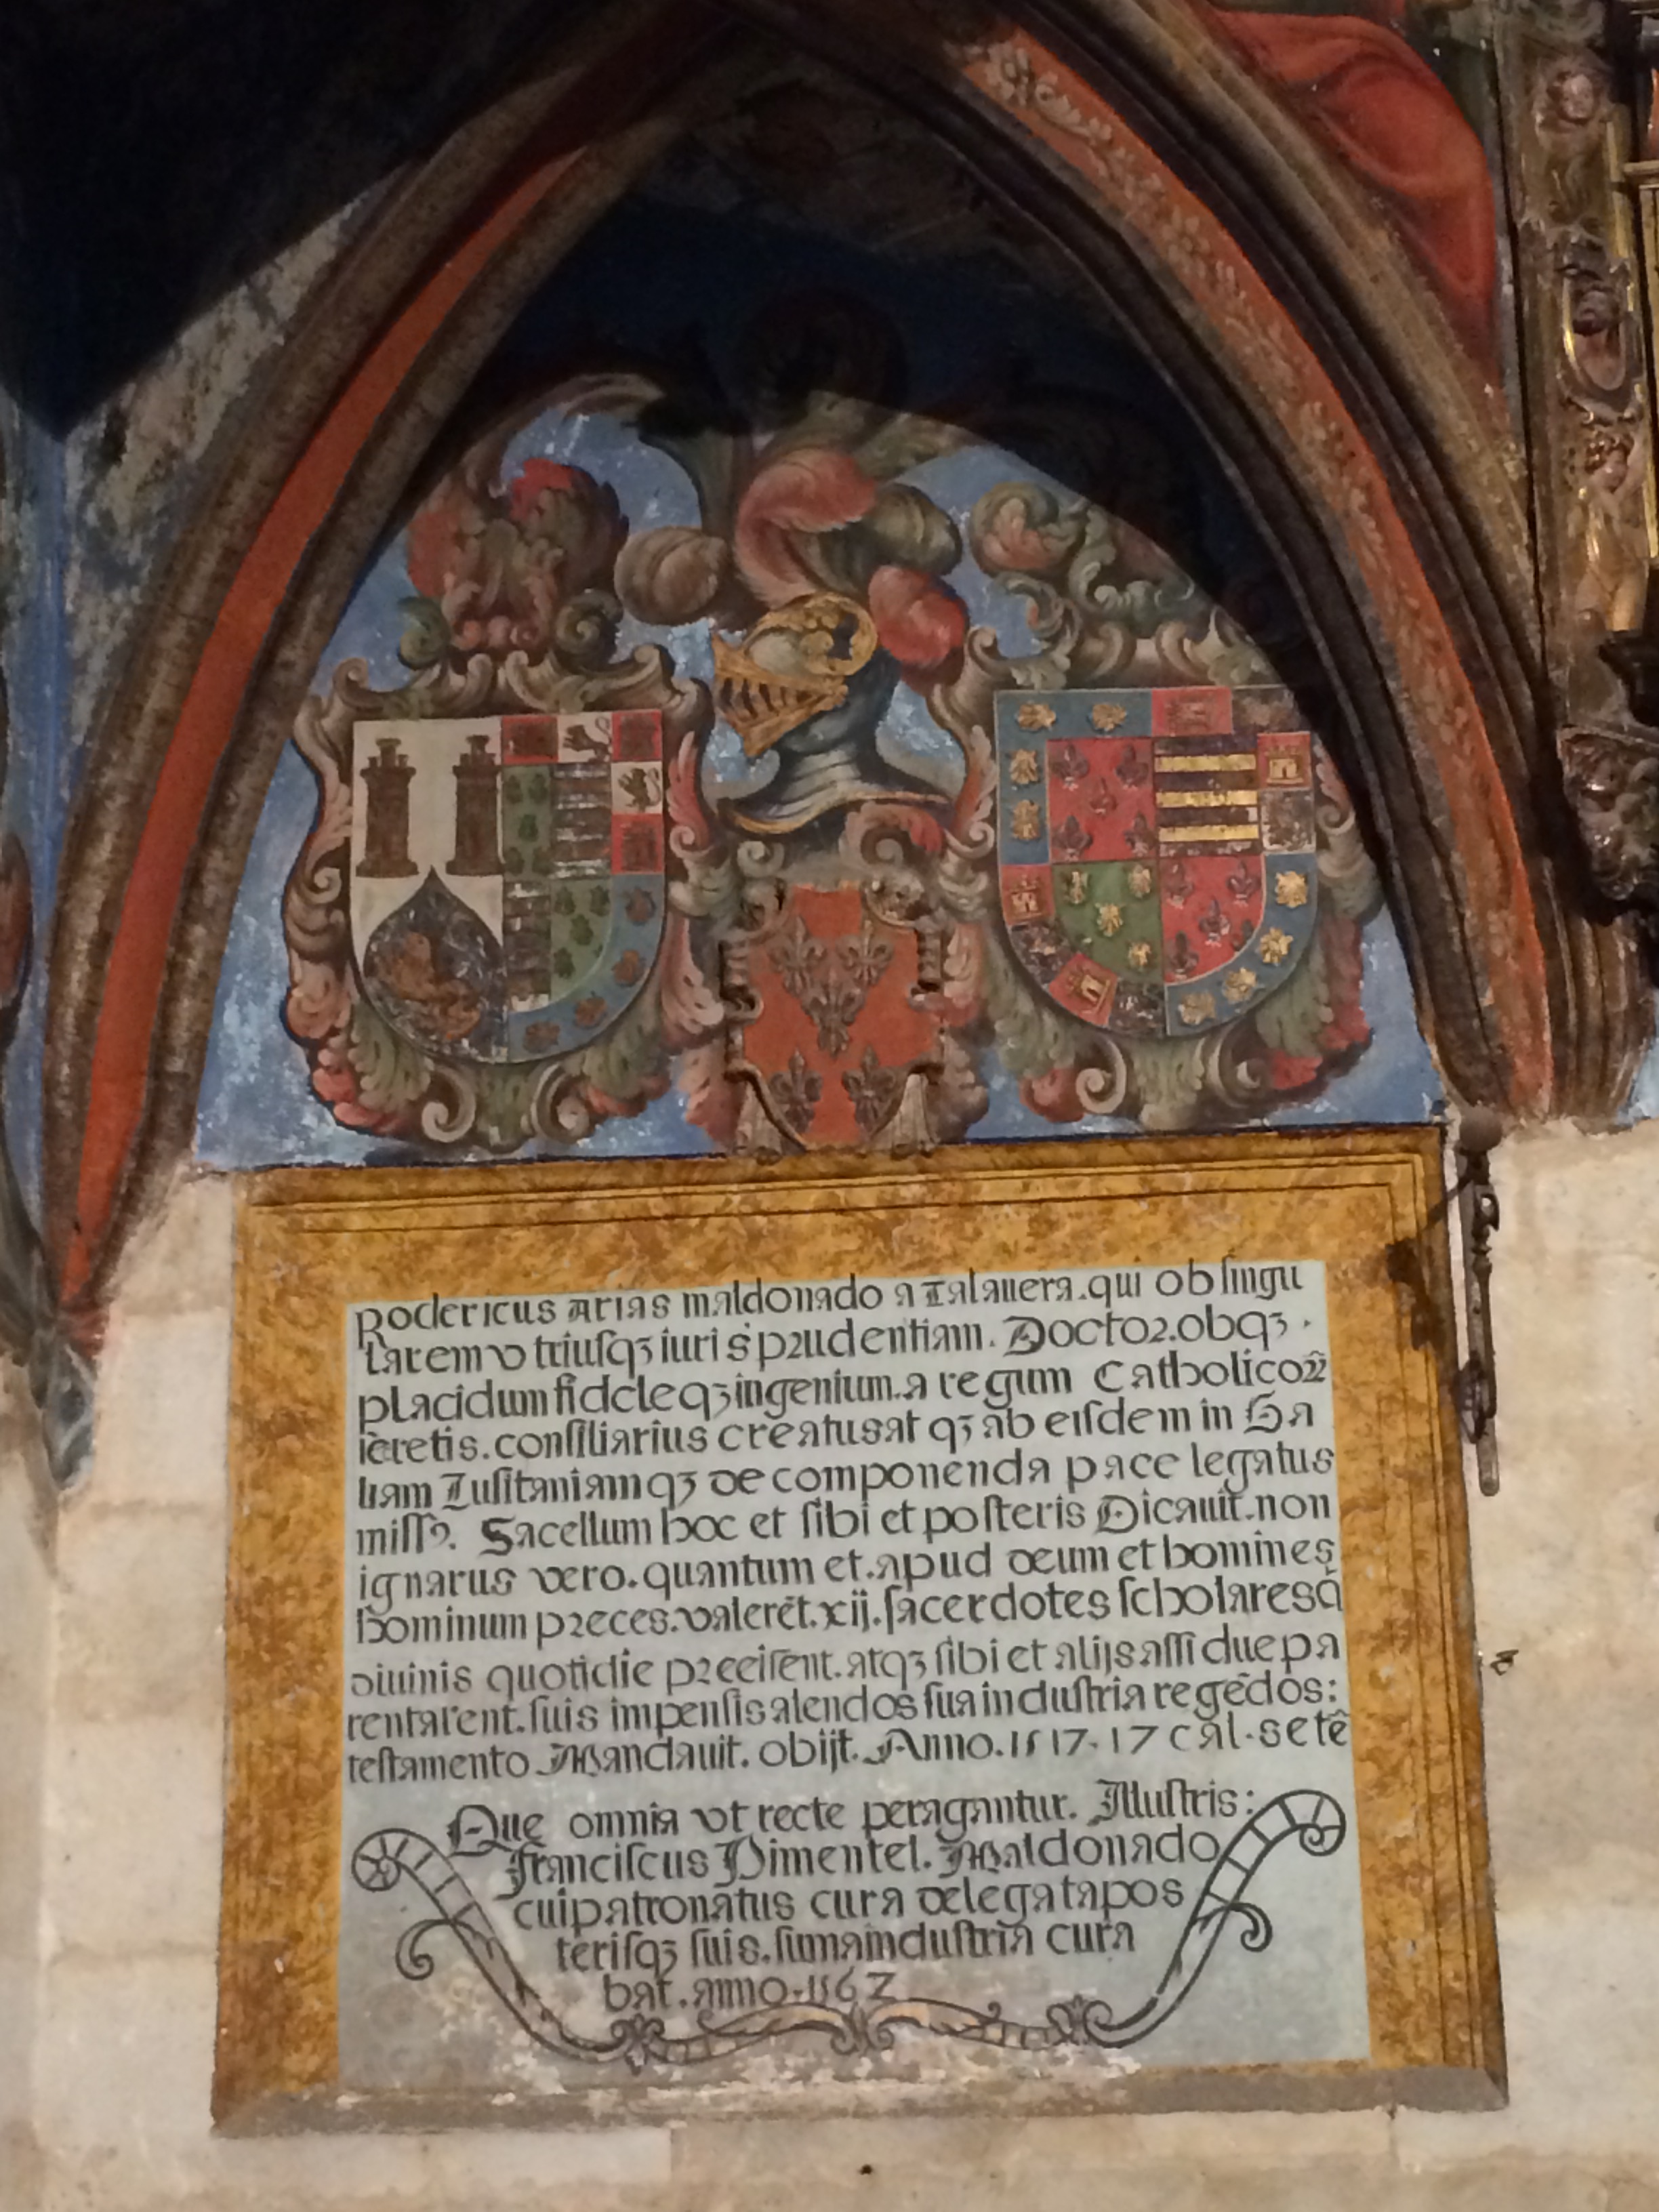 Rodericus Arias maldonado a Talauera.qui ob singu
larem vtriusqꝫ iuris prudentiam. Doctor.obqꝫ.
placidum fideleqꝫ ingenium.a regum Catholicoꝝ
secretis.consiliarius creatus atqꝫ ab eisdem in Ga
liam Lusitaniamqꝫ de componenda pace legatus
missꝰ. Sacellum hoc et sibi et posteris Dicauit.non
ignarus vero.quantum et.apud deum et homines
hominum preces.valerēt.xij.sacerdotes scholaresq̄
diuinis quotidie preeisēnt.atqꝫ sibi et alijs assidue pa
rentarent.suis impensis alendos sua industria regēdos:
testamento Mandauit. obijt. Anno.1517.17 cal.setē
Que omnia vt recte peragantur. Illustris:
franciscus Pimentel. Maldonado
cui patronatus cura delegata pos
terisqꝫ suis.suma industria cura
bat.anno.1562